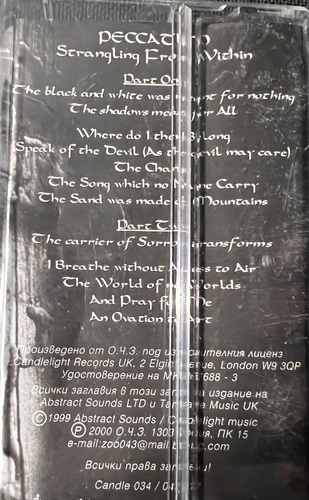 PECCATUM
Strangling From Within
Part One
The black and white was meant for nothing
The shadows mean for All
Where do I then Belong
Speak of the Devil (As the devil may care)
The Change
The Song which no Name Carry
The Sand was made of Mountains
Part Two
The carrier of Sorrow transforms
I Breathe without Access to Air
The World of no Worlds
And Pray for Me
An Ovation to Art
Произведено от О.Ч.З. под изключителния лиценз
Candlelight Records UK, 2 Elgin Avenue, London W9 3QP
Удостоверение на 688 - 3
Всички заглавия в този запис са издание на
Abstract Sounds LTD и Music UK
© 1999 Abstract Sounds / Candlelight music
Ⓟ 2000 О.Ч.З. София, ПК 15
e-mail:zob043@
Всички права запазени!
Candle 034 /